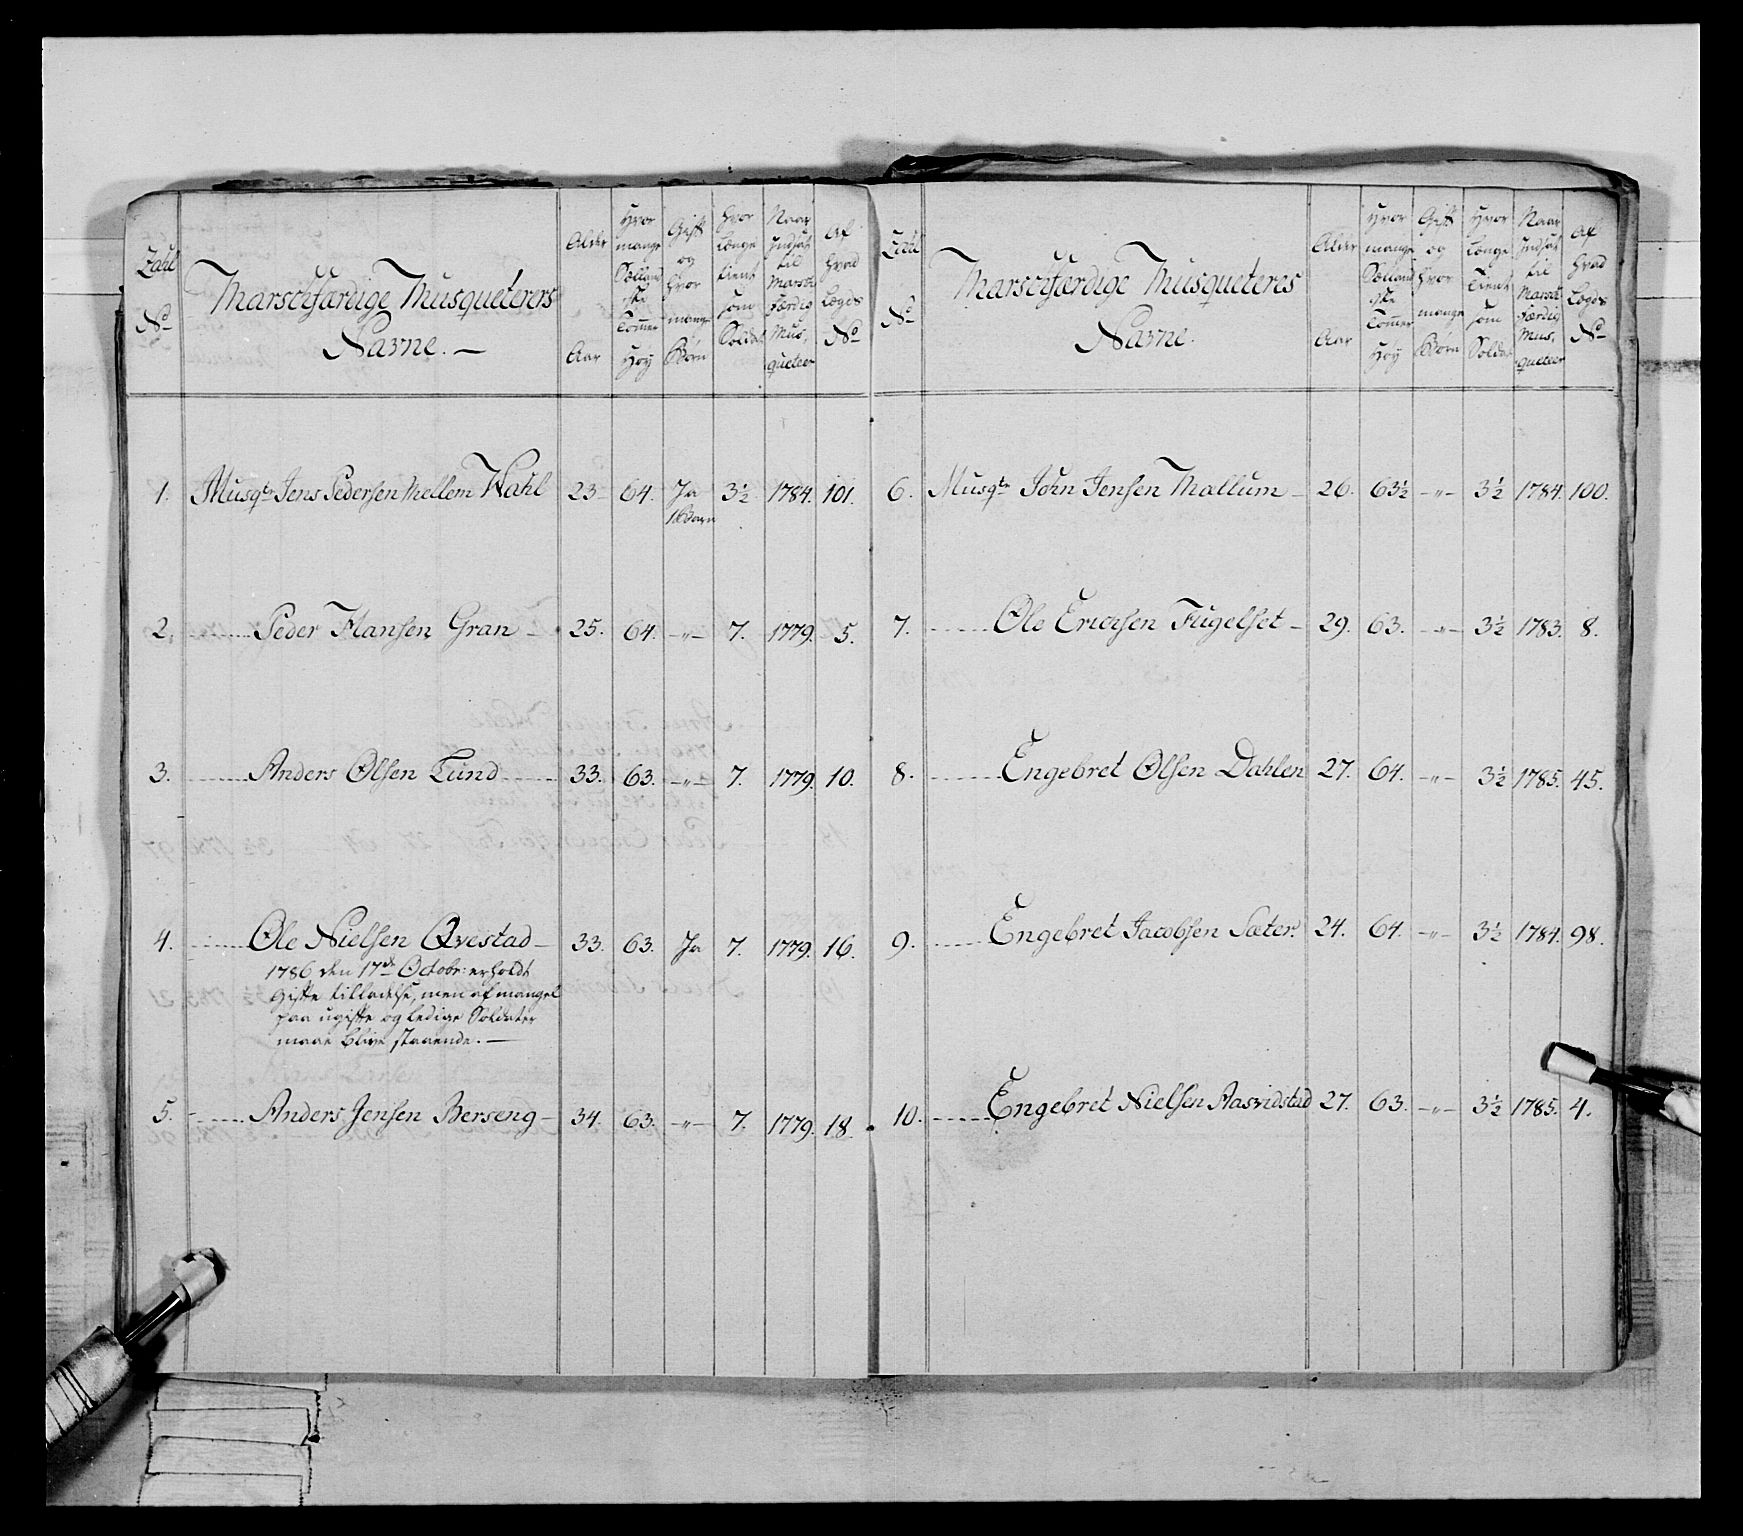 Zahl No
Marschfærdige Musqueterers
Navne. —
Alder Aar
Hvor mange Sællandske Tommer Høy
Gift og hvor mange Børn
Hvor længe tient som Soldat
Naar Indsat til Marschfærdig Musqueteer
Af hvad Lægds No
1. Musqtr Jens Pedersen Mellem Wahl 23 64. Ja 1 Barn 3½ 1784. 101.
2. Peder Hansen Gran 25. 64. —"— 7. 1779. 5.
3. Anders Olsen Lund 33. 63. —"— 7. 1779. 10.
4. Ole Nielsen Qvestad 33. 63. Ja 7. 1779. 16.
1786 den 17de Octobr: erholdt
Gifte tilladelse, men af mangel
paa ugifte og ledige Soldater
maae blive staaende. —
5. Anders Jensen Berseng 34. 63. —"— 7. 1779. 18.
Zahl No
Marschfærdige Musqueteres
Navne.
Alder Aar
Hvor mange Sællandske Tommer Høy
Gift og hvor mange Børn
Hvor længe Tient som Soldat
Naar Indsat til Marschfærdig Musqueteer
Af hvad Lægds No
6. Musqtr John Jensen Mællum 26. 63½ —"— 3½ 1784. 100.
7. Ole Ericksen Fugelset 29. 63. —"— 3½ 1783. 8.
8. Engebret Olsen Dahlen 27. 64. —"— 3½ 1785. 45.
9. Engebret Jacobsen Sæter. 24. 64. —"— 3½ 1784. 98.
10. Engebret Nielsen Aasvidstad 27. 63. —"— 3½ 1785. 4.